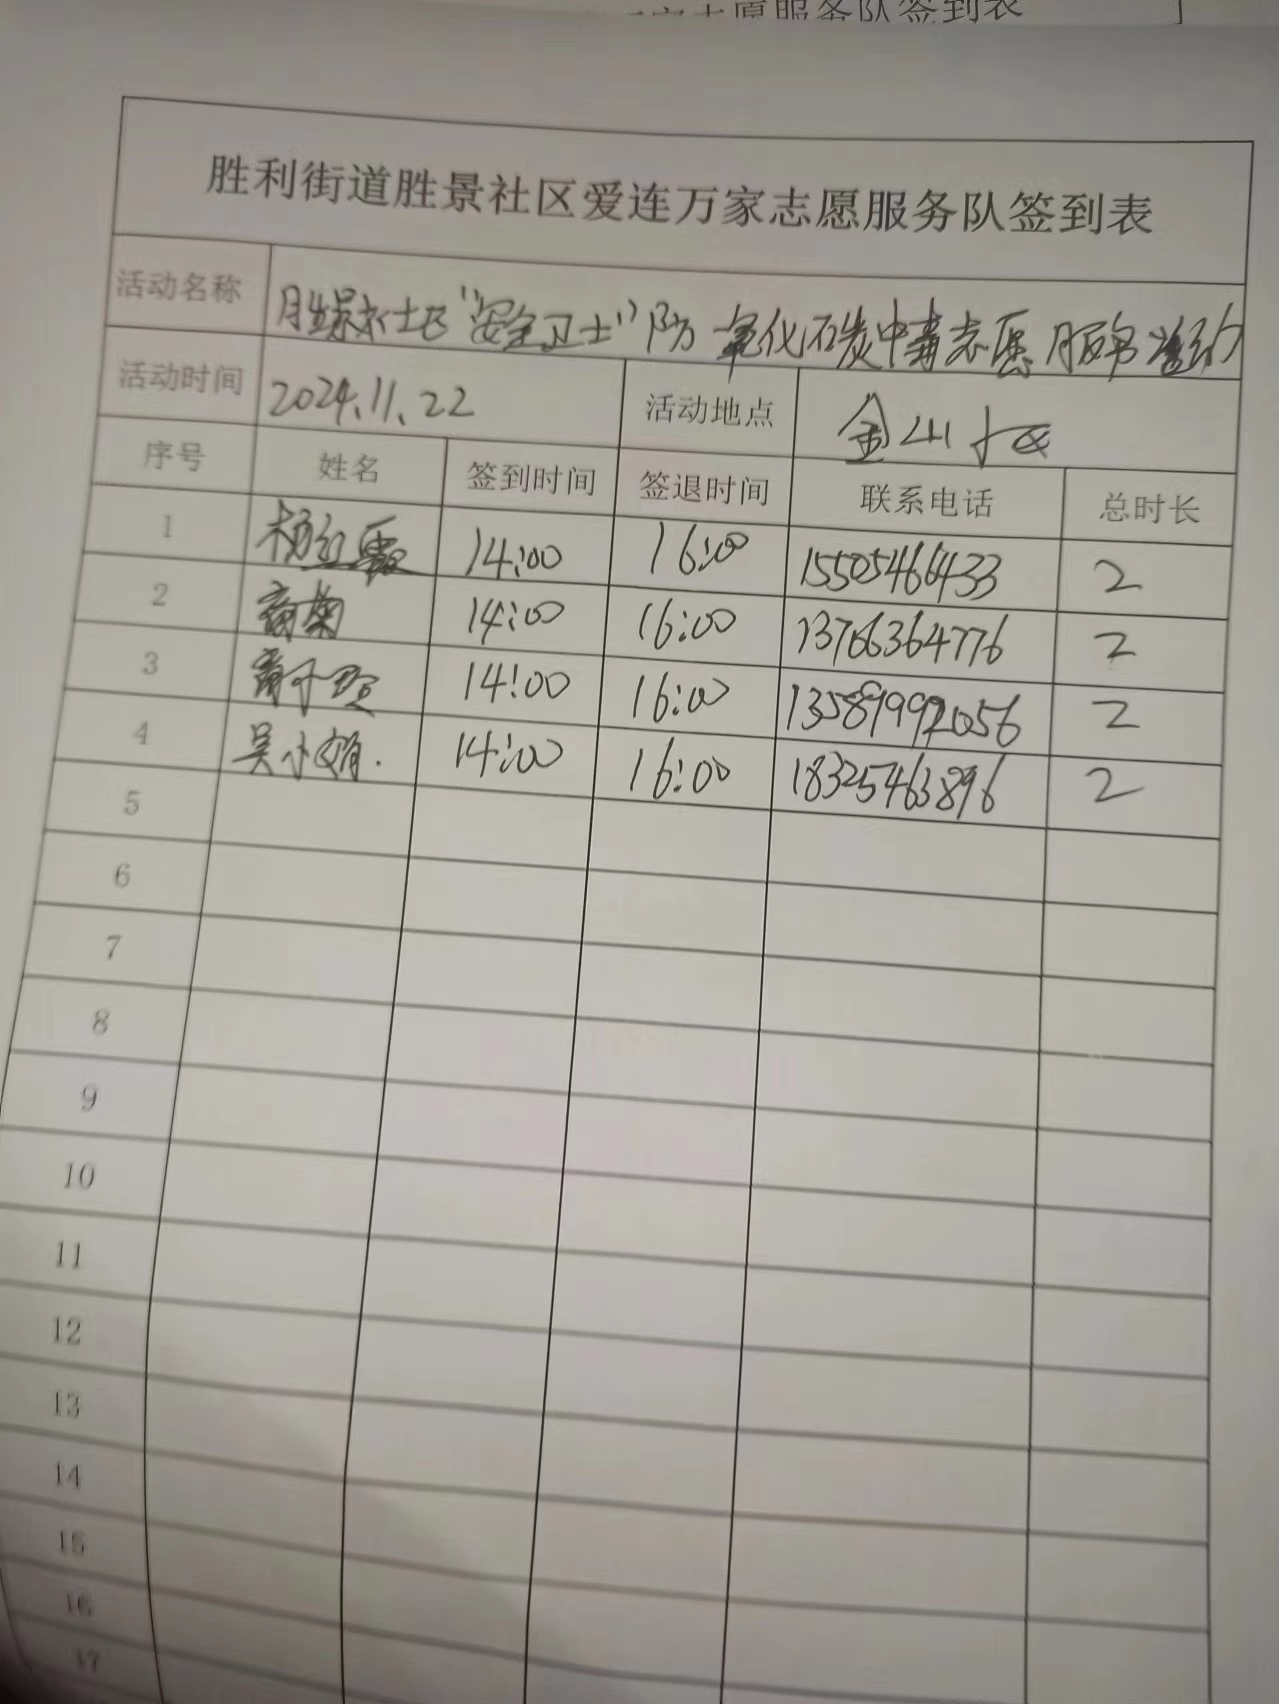 志愿服务队签到表
胜利街道胜景社区爱连万家志愿服务队签到表
活动名称 胜景社区“安全卫士”防一氧化碳中毒志愿服务活动
活动时间 2024.11.22 活动地点 金山小区
序号 姓名 签到时间 签退时间 联系电话 总时长
1 杨红霞 14:00 16:00 15505466433 2
2 商菊 14:00 16:00 13766364776 2
3 14:00 16:00 2
4 吴小娟. 14:00 16:00 18325463896 2
5
6
7
8
9
10
11
12
13
14
15
16
17